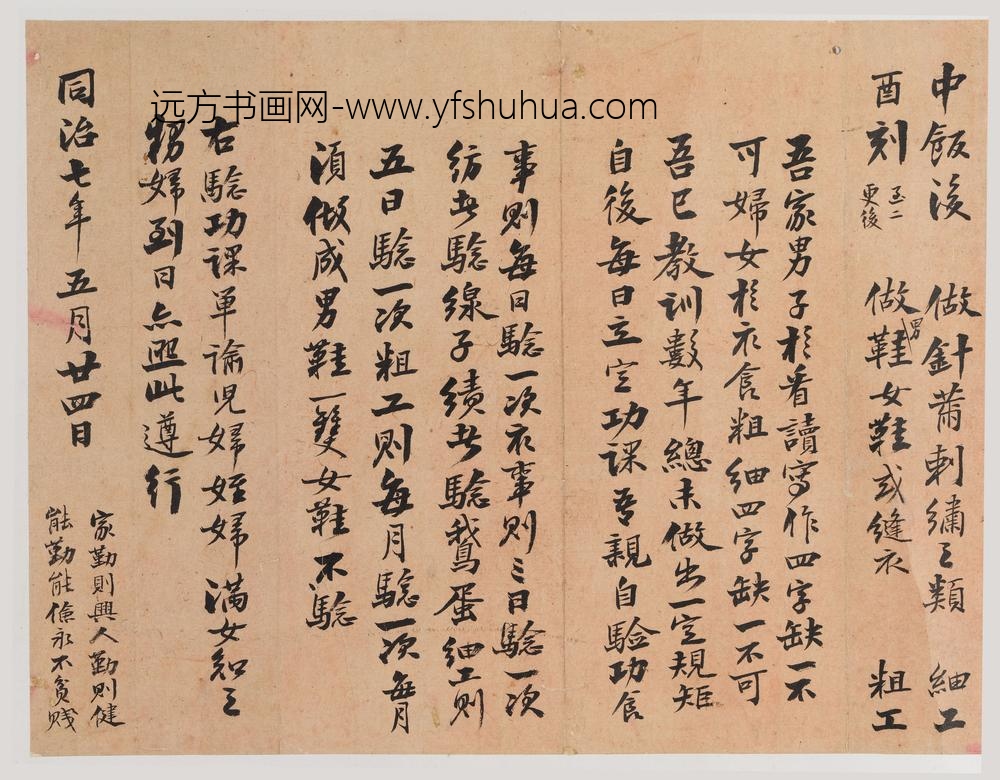 中飯後 做針黹刺繡之類 細工
酉刻 至二更後 做男鞋女鞋或縫衣 粗工
吾家男子於看讀寫作四字缺一不
可婦女於衣食粗細四字缺一不可
吾已教訓數年總未做出一定規矩
自後每日立定功課吾親自驗功食
事則每日驗一次衣事則三日驗一次
紡者驗線子績者驗鵝蛋細工則
五日驗一次粗工則每月驗一次每月
須做成男鞋一雙女鞋不驗
右驗功課單諭兒婦姪婦滿女知之
甥婦到日亦照此遵行
同治七年五月廿四日
家勤則興人勤則健
能勤能儉永不貧賤
远方书画网-www.yfshuhua.com